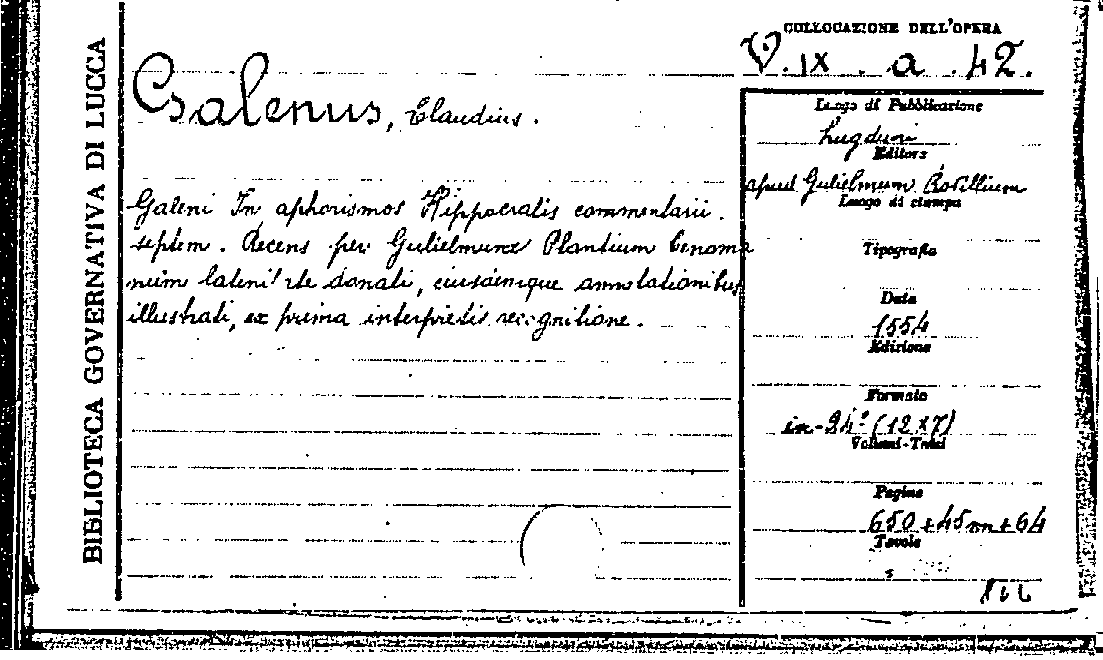 BIBLIOTECA GOVERNATIVA DI LUCCA
COLLOCAZIONE DELL'OPERA
V. IX. a. 42.
Galenus, Claudius.
Galeni In aphorismos Hippocratis commentarii
septem. Recens per Gulielmum Plantium Cenoma
num donati, eiusdemque annotationibus
illustrati, ex prima interpretis recognitione.
Luogo di Pubblicazione
Lugduni
Editore
apud Gulielmum Rovillium
Luogo di stampa
Tipografia
Data
1554
Edizione
Formato
in-24° (12x7)
Volumi-Tomi
Pagine
650+45nn+64
Tavole